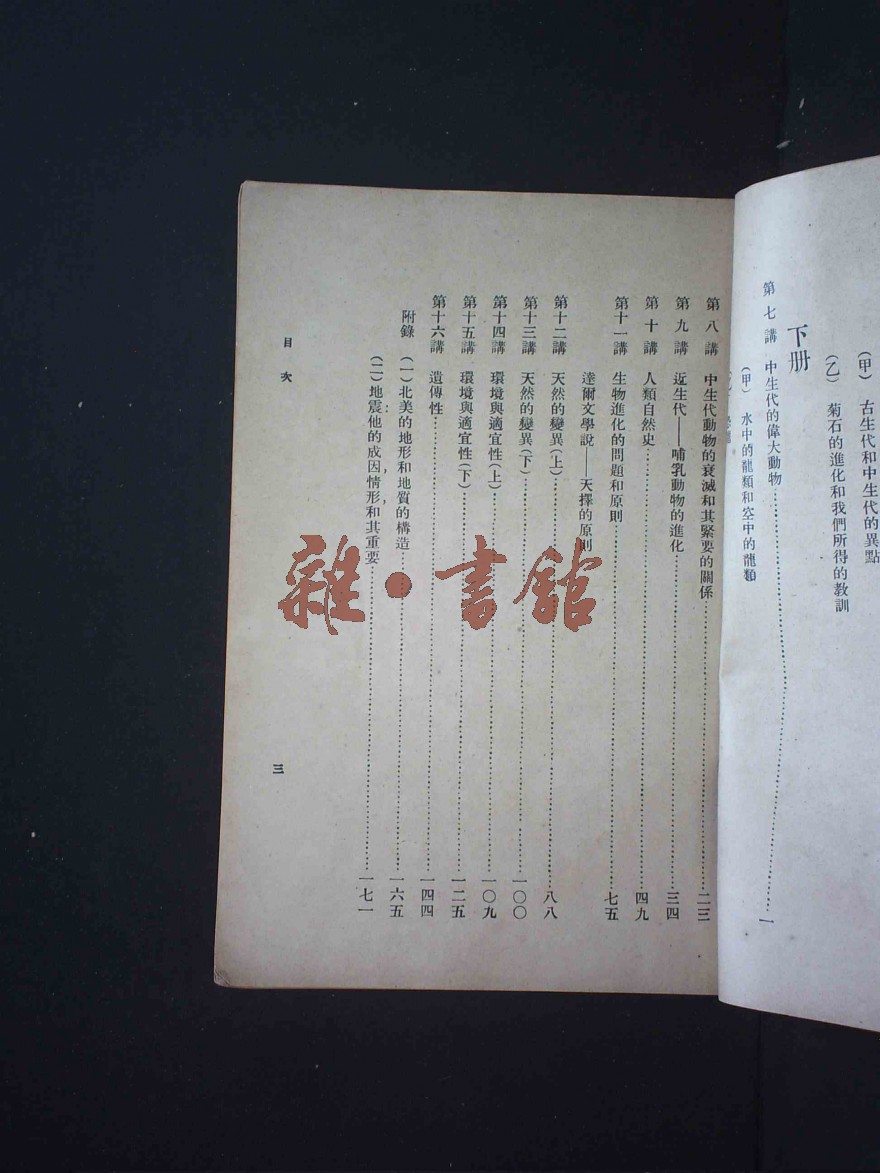 （甲） 古生代和中生代的異點
（乙） 菊石的進化和我們所得的教訓
下册
第七講 中生代的偉大動物……一
（甲） 水中的龍類和空中的龍類
第八講 中生代動物的衰滅和其緊要的關係……二三
第九講 近生代——哺乳動物的進化……三四
第十講 人類自然史……四九
第十一講 生物進化的問題和原則……七五
達爾文學說——天擇的原則
第十二講 天然的變異（上）……八八
第十三講 天然的變異（下）……一〇〇
第十四講 環境與適宜性（上）……一〇九
第十五講 環境與適宜性（下）……一二五
第十六講 遺傳性……一四四
附錄 （一）北美的地形和地質的構造……一六五
（二）地震：他的成因，情形，和其重要……一七一
目次
三
雜·書館